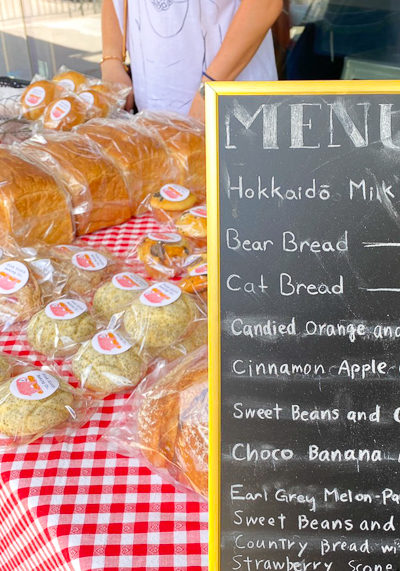 MENU
Hokkaidō Milk
Bear Bread
Cat Bread
Candied Orange and
Cinnamon Apple
Sweet Beans and
Choco Banana
Earl Grey Melon-Pa
Sweet Beans and
Country Bread wi
Strawberry Scone